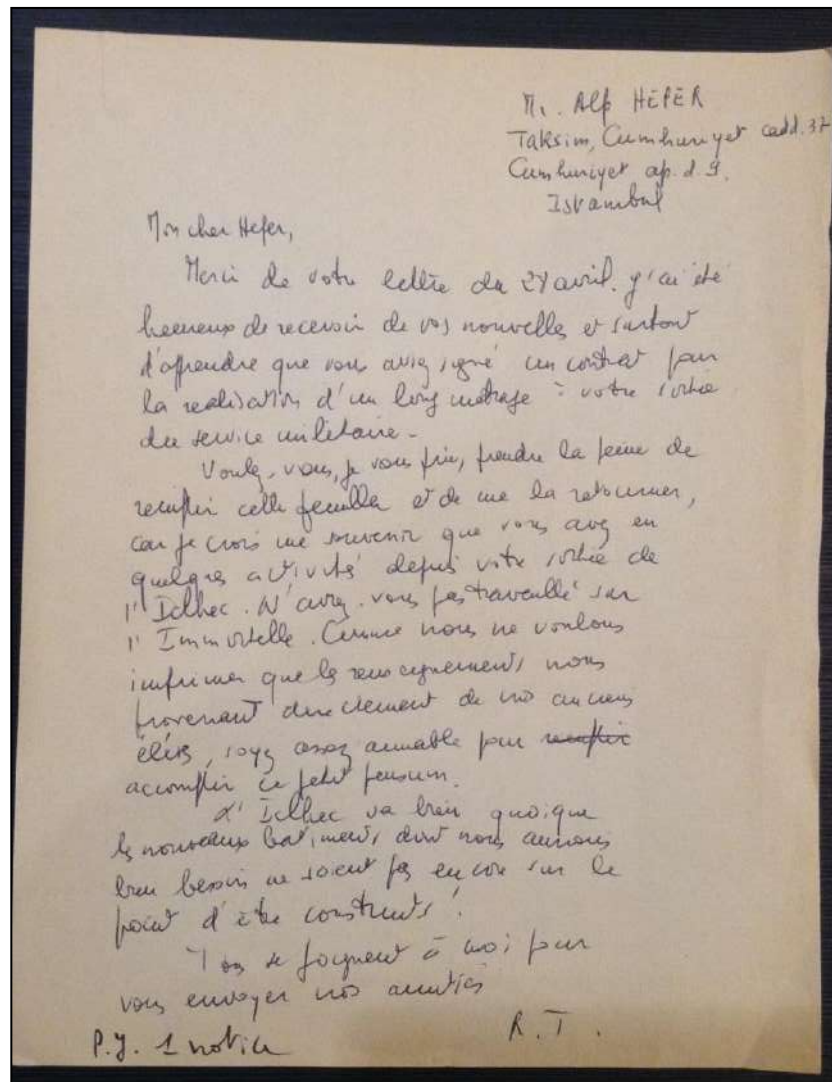 Mr. Alp HEPER
Taksim, Cumhuriyet cadd. 37
Cumhuriyet ap. d. 9.
Istambul
Mon cher Heper,
Merci de votre lettre du 27 avril. J'ai été
heureux de recevoir de vos nouvelles et surtout
d'apprendre que vous aviez signé un contrat pour
la réalisation d'un long métrage à votre sortie
du service militaire.
Voulez-vous, je vous prie, prendre la peine de
remplir cette feuille et de me la retourner,
car je crois me souvenir que vous avez eu
quelques activités depuis votre sortie de
l'Idhec. N'avez-vous pas travaillé sur
l'Immortelle. Comme nous ne voulons
imprimer que les renseignements nous
provenant directement de nos anciens
élèves, soyez assez aimable pour remplir
accomplir ce petit pensum.
L'Idhec va bien quoique
les nouveaux batiments dont nous aurions
bien besoin ne soient pas encore sur le
point d'être construits !
Tous se joignent à moi pour
vous envoyer nos amitiés
R. T.
P.J. 1 notice